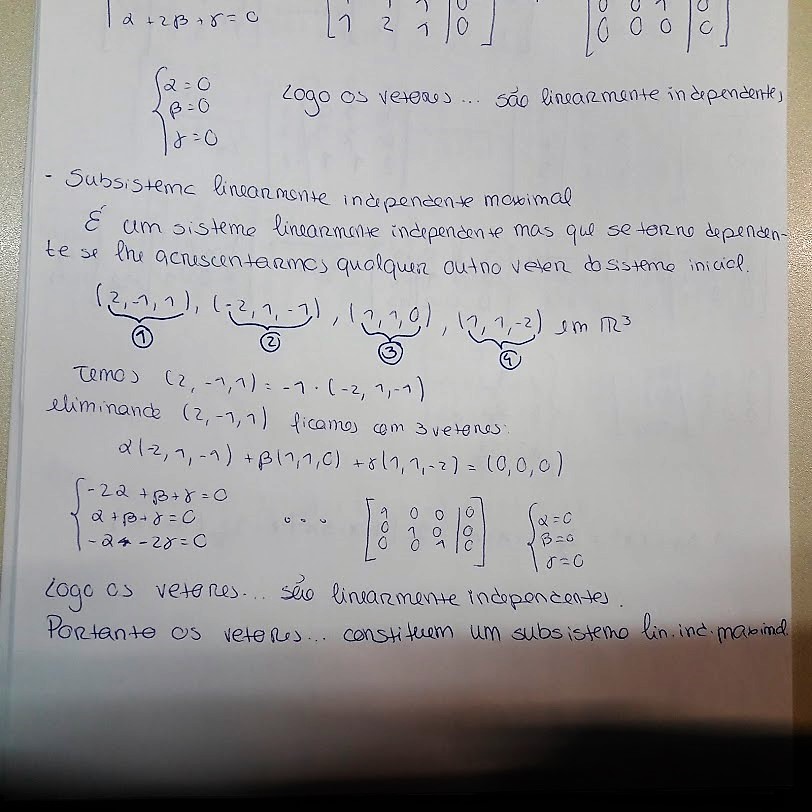 α + 2β + γ = 0 [1 2 1 | 0] [0 0 0 | 0]
{α = 0
β = 0 Logo os vetores... são linearmente independentes
γ = 0
- Subsistema linearmente independente maximal
É um sistema linearmente independente mas que se torna dependen-
te se lhe acrescentarmos qualquer outro vetor do sistema inicial.
(2,-1,1), (-2,1,-1), (1,1,0), (1,1,-2) em ℝ³
① ② ③ ④
Temos (2,-1,1) = -1 · (-2, 1,-1)
eliminando (2,-1,1) ficamos com 3 vetores:
α(-2,1,-1) + β(1,1,0) + γ(1,1,-2) = (0,0,0)
{-2α + β + γ = 0 [1 0 0 | 0] {α = 0
α + β + γ = 0 ... [0 1 0 | 0] β = 0
-α - 2γ = 0 [0 0 1 | 0] γ = 0
Logo os vetores... são linearmente independentes.
Portanto os vetores... constituem um subsistema lin. ind. maximal.